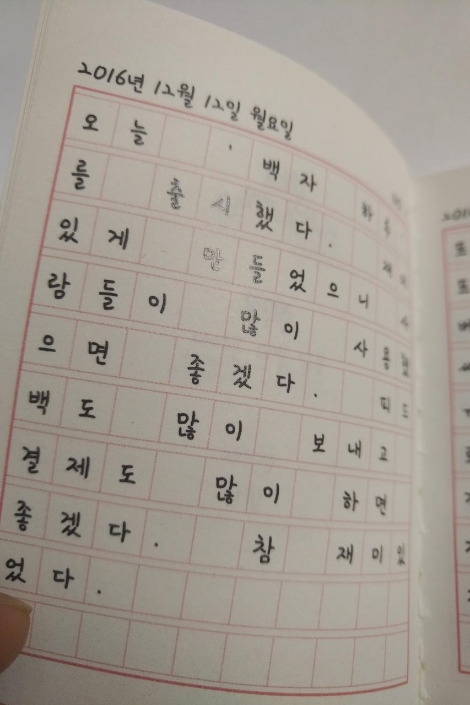 2016년 12월 12일 월요일
오늘 , 백자 하루
를 출시했다. 재미
있게 만들었으니 사
람들이 많이 사용했
으면 좋겠다. 피드
백도 많이 보내고
결제도 많이 하면
좋겠다. 참 재미있
었다.